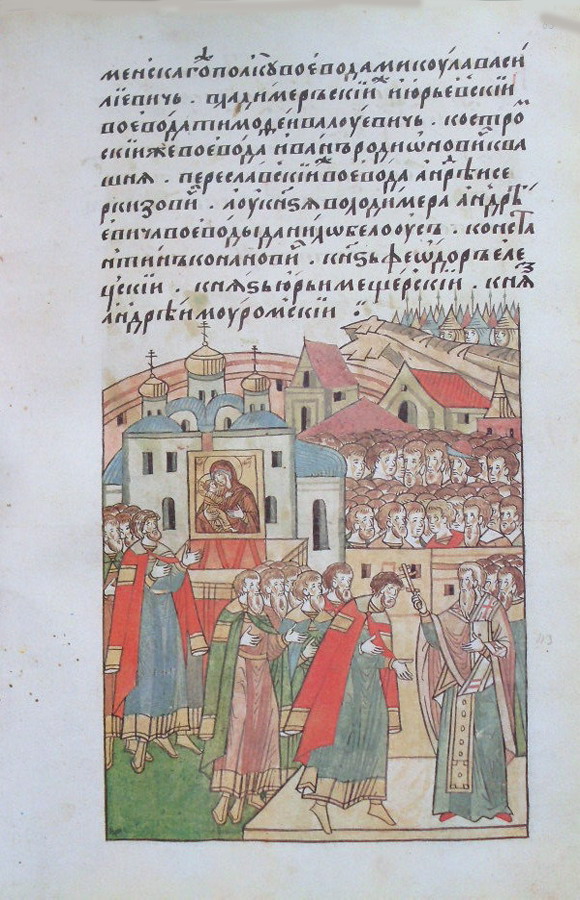 менскагѡ полкꙋ воевода микоула васи
лїевичь . владимерьскїи и юрьевскїи
воевода тимоѳеи валоуевичь . костроⷨ
скїи же воевода иванъ родиѡнови ква
шня . переславскїи воевода анⷣрѣи се
ркизовиⷱ . а оу кнѕѧ володимера андрѣ
евича воеводы данилѡ белооусъ . конста
нтинъ конановиⷱ . кнѕь феѡдоръ еле
цскїи . княѕь юрьи мещерскїи . кнѧⷥ
андрѣи моуромскїи